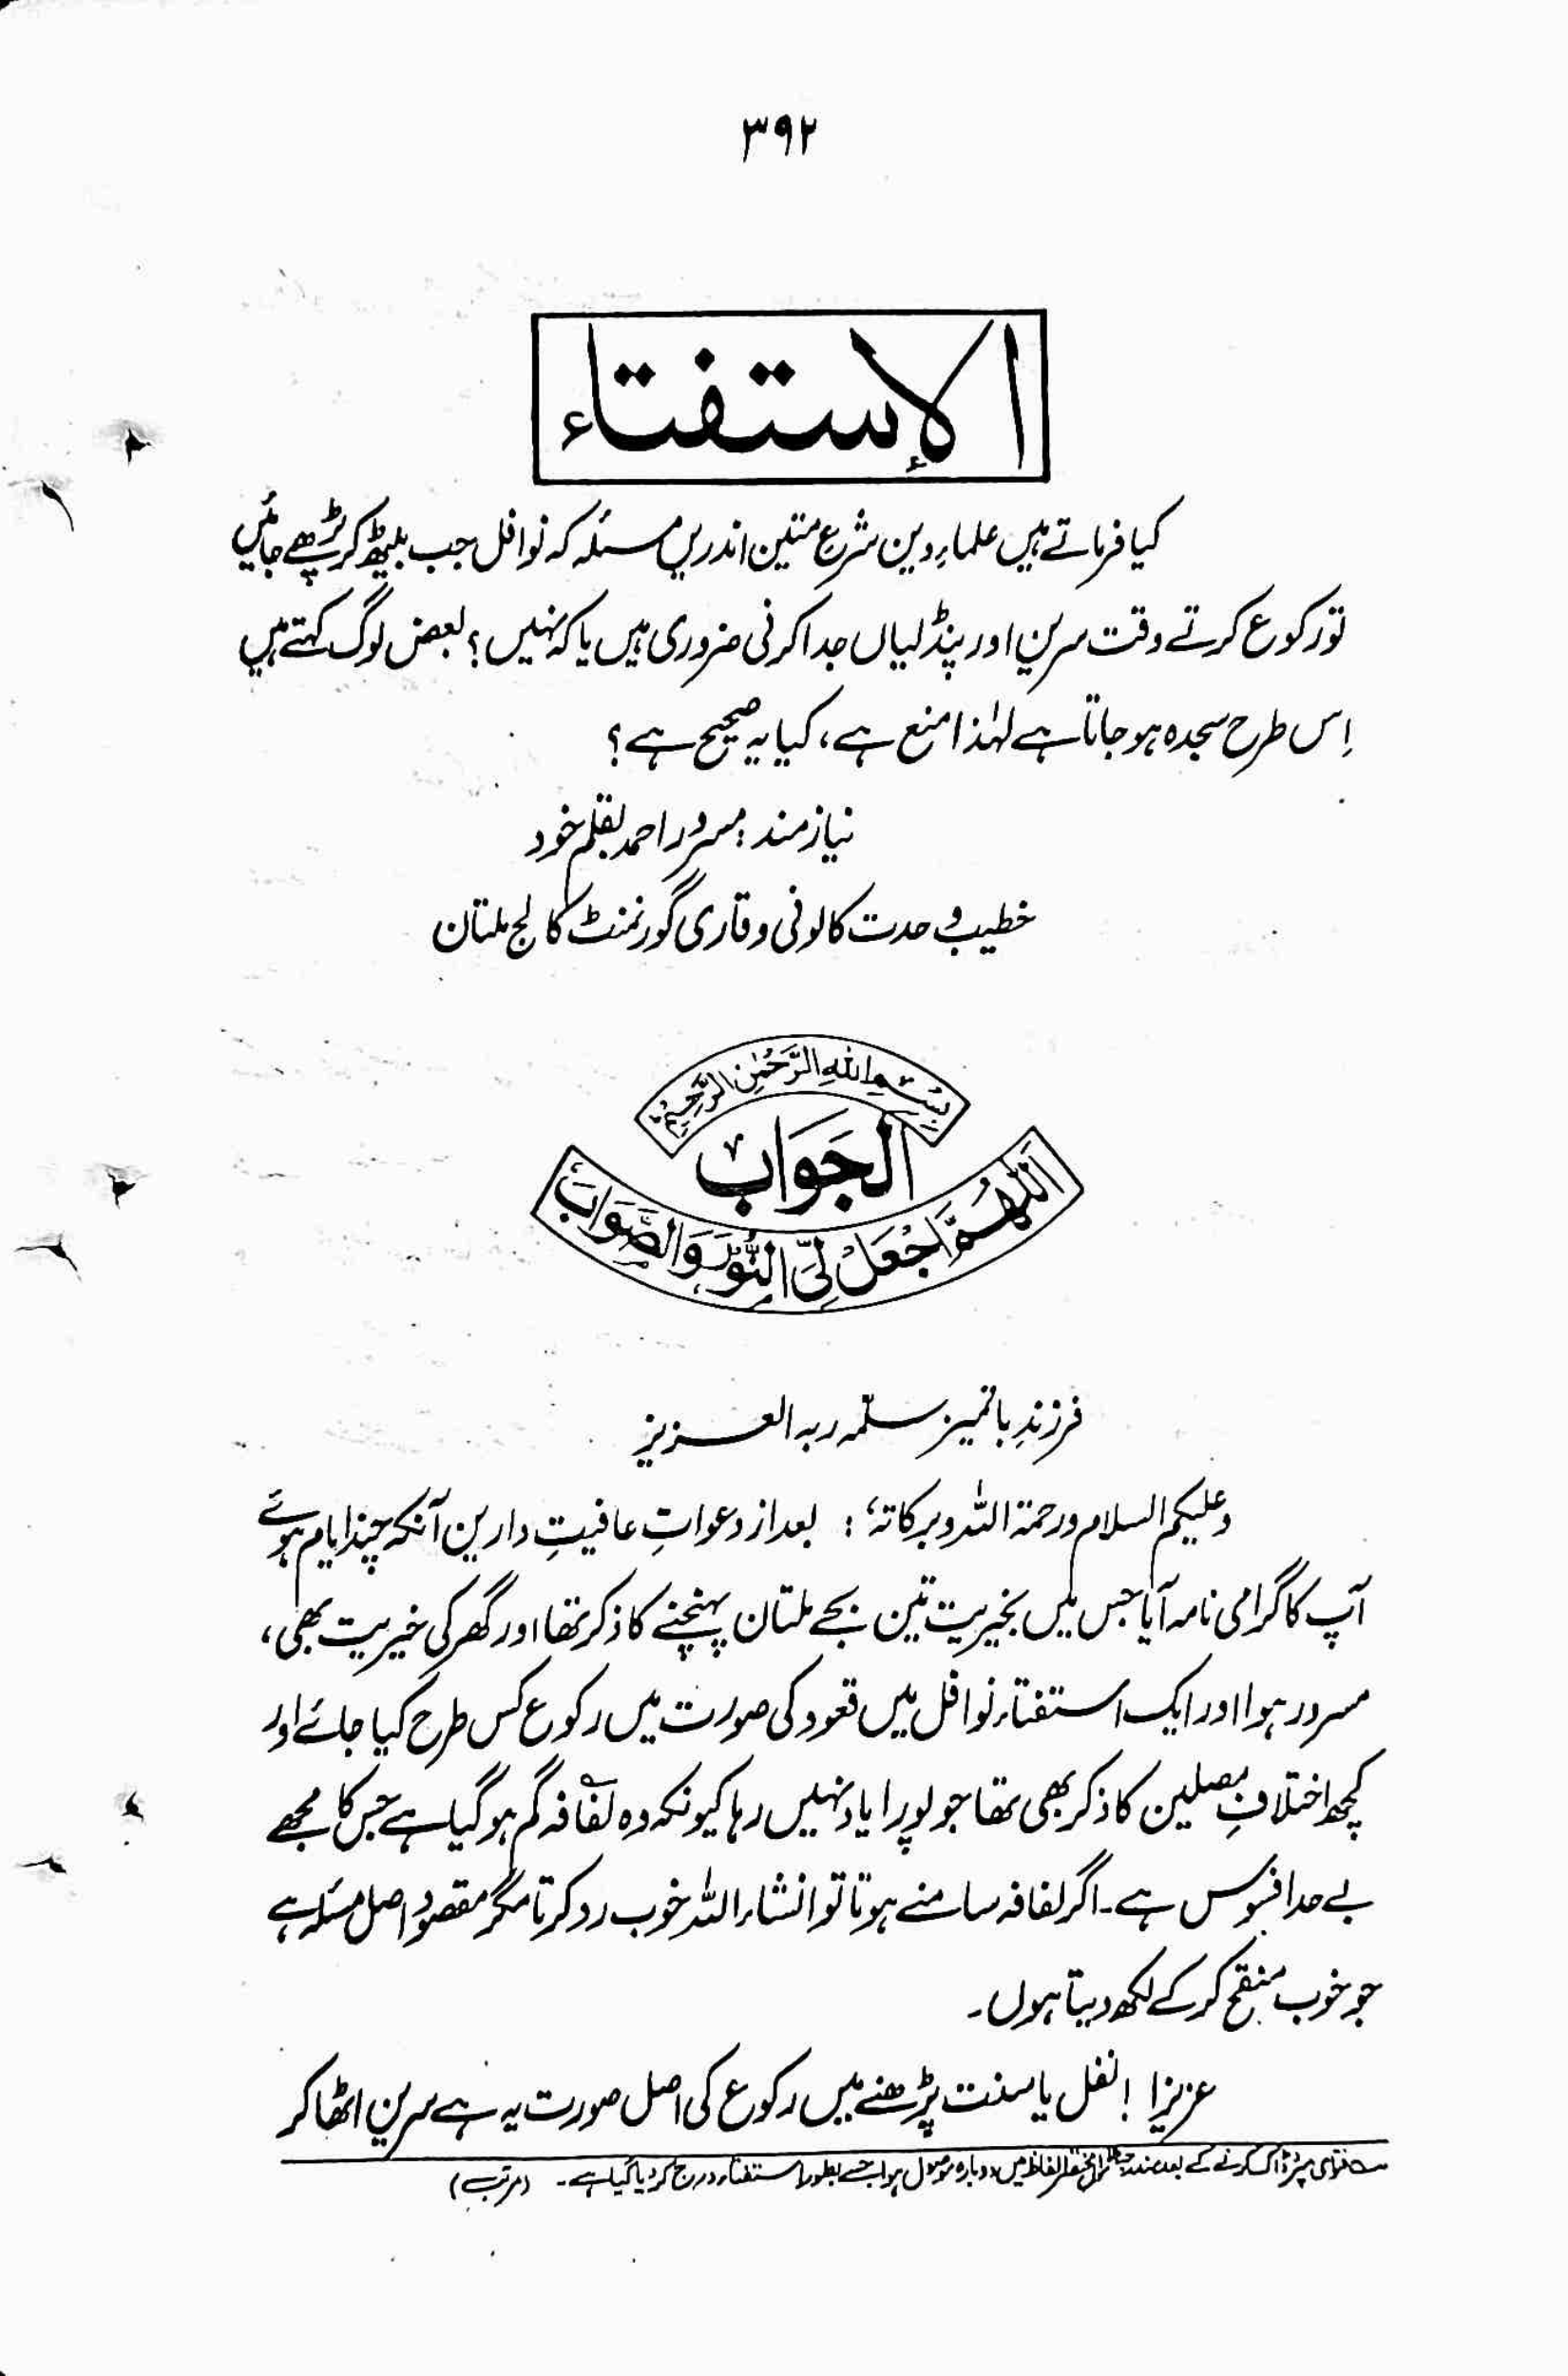 ۳۹۲
الإستفتاء
کیا فرماتے ہیں علماءِ دین شرع متین اندریں مسئلہ کہ نوافل جب بیٹھ کر پڑھے جائیں
تو رکوع کرتے وقت سرین اور پنڈلیاں جدا کرنی ضروری ہیں یا کہ نہیں؟ بعض لوگ کہتے ہیں
اِس طرح سجدہ ہو جاتا ہے لہٰذا منع ہے، کیا یہ صحیح ہے؟
نیازمند: سرور احمد بقلم خود
خطیب وحدت کالونی و قاری گورنمنٹ کالج ملتان
بِسْمِ اللهِ الرَّحْمٰنِ الرَّحِيْمِ
الجَوَابُ
اَللّٰهُمَّ اجْعَلْ لِّىَ النُّوْرَ وَالصَّوَابَ
فرزندِ باتمیز سلّمہ ربہ العزیز
وعلیکم السلام ورحمۃ اللہ وبرکاتہٗ: بعد از دعواتِ عافیتِ دارین آنکہ چند ایام ہوئے
آپ کا گرامی نامہ آیا جس میں بخیریت تین بجے ملتان پہنچنے کا ذکر تھا اور گھر کی خیریت بھی،
مسرور ہوا اور ایک استفتاء نوافل میں قعود کی صورت میں رکوع کس طرح کیا جائے اور
کچھ اختلافِ مصلین کا ذکر بھی تھا جو پورا یاد نہیں رہا کیونکہ وہ لفافہ گم ہو گیا ہے جس کا مجھے
بے حد افسوس ہے۔ اگر لفافہ سامنے ہوتا تو انشاء اللہ خوب رد کرتا مگر مقصود اصل مسئلہ ہے
جو خوب منقح کر کے لکھ دیتا ہوں۔
عزیزا! نفل یا سنت پڑھنے میں رکوع کی اصل صورت یہ ہے سرین اٹھا کر
فتوٰی سپردِ ڈاک کرنے کے بعد مندرجہ بالا سوال مختصر الفاظ میں دوبارہ موصول ہوا جسے بطور استفتاء درج کر دیا گیا ہے۔ (مرتب)